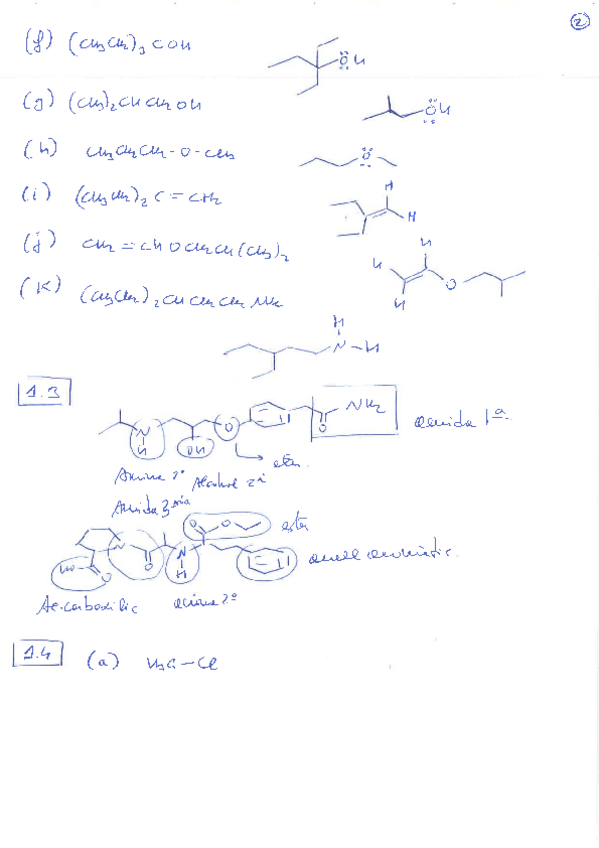 2
(f) (CH3CH2)3 COH
OH
(g) (CH3)2CHCH2OH
OH
(h) CH3CH2CH2-O-CH3
O
(i) (CH3CH2)2 C=CH2
H
H
(j) CH2=CHOCH2CH(CH3)2
H
H
H
O
(k) (CH3CH2)2CHCH2CH2NH2
H
N-H
1.3
N
H
OH
O
O
NH2
amida 1ª
eter.
Amina 2ª Alcohol 2ª
Amida 3aria
O
O
ester
N
O
N
H
HO
O
anell aromàtic.
Ac. carboxílic amina 2ª
1.4 (a) H3C-Cl